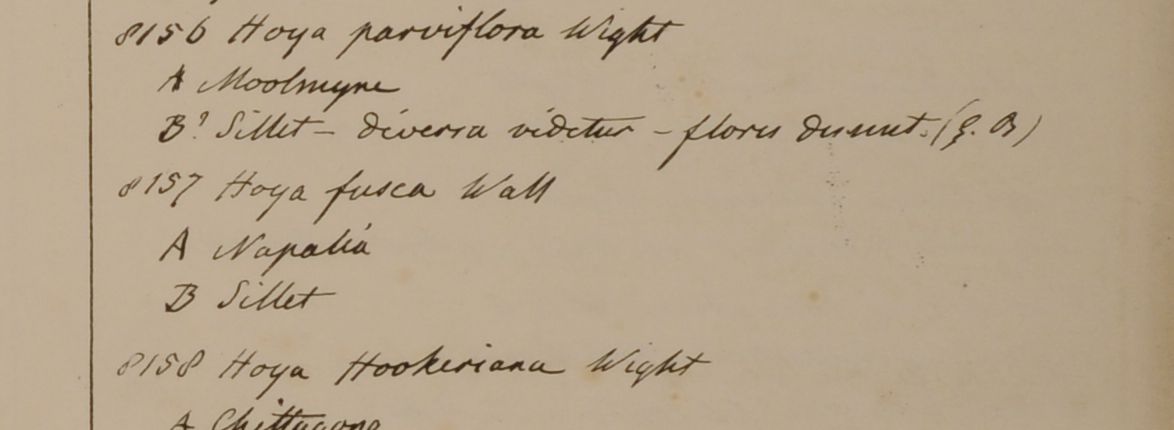 8156 Hoya parviflora Wight
A Moolmyne
B? Sillet – diversa videtur – flores desunt. (G. B)
8157 Hoya fusca Wall
A Napalia
B Sillet
8158 Hoya Hookeriana Wight
A Chittagong